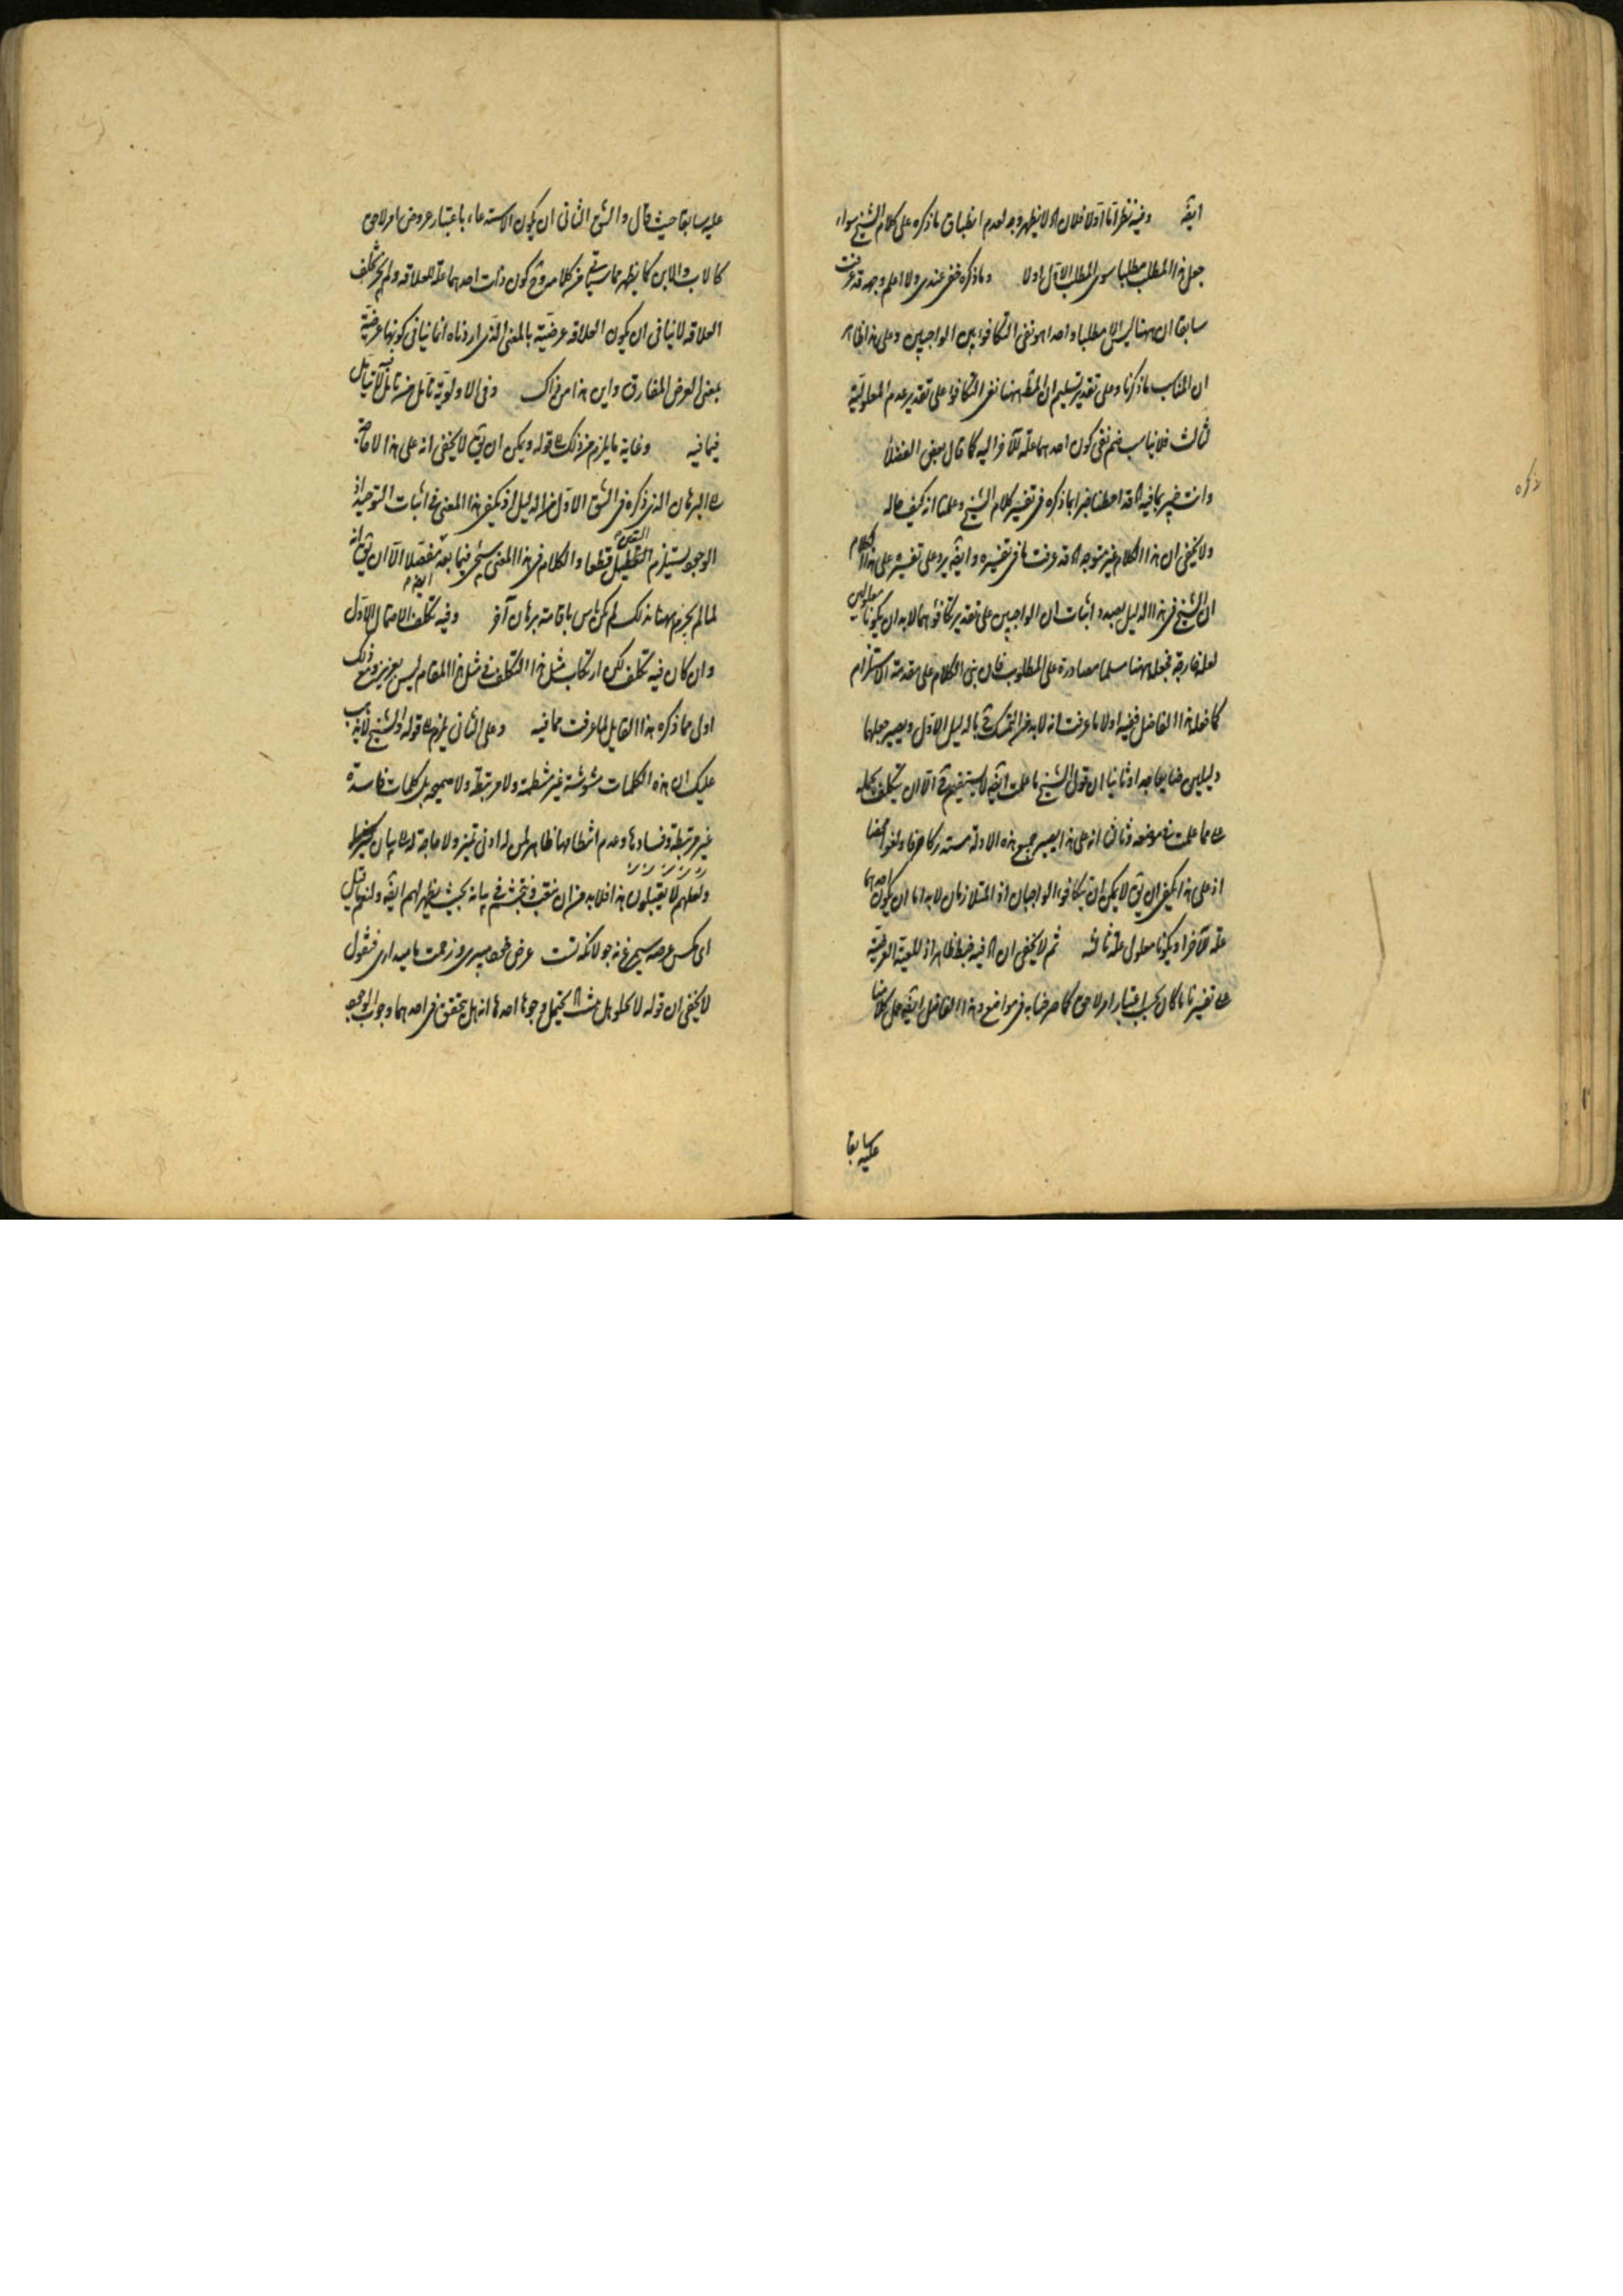 ايضا وفيه نظر اما اولا فلانه لا يظهر وجه لعدم انطباق ما ذكره على كلام الشيخ سواء
جعل هذا المطلب مطلبا سوى المطلب الاول اولا وما ذكره خفى عندى ولا اعلم وجهه قد عرفت
سابقا ان ههنا ليس الا مطلبا واحدا هو نفى التكافؤ بين الواجبين وعلى هذا ظاهر
ان المناسب ما ذكرنا وعلى تقدير تسليم ان المط ههنا نفى التكافؤ على تقدير عدم المعلولية
لثالث فلا يناسب ضم نفى كون احدهما علة للآخر اليه كما قال بعض الفضلا
وانت خبير بما فيه قد احطنا خبرا بما ذكره فى تفسير كلام الشيخ وعلمنا انه كيف حاله
ولا يخفى ان هذا الكلام غير متوجه قد عرفت ما فى تفسيره وايضا يرد على تفسيره على هذا الكلام
ان الشيخ فى هذا الدليل بصدد اثبات ان الواجبين على تقدير تكافؤهما لابد ان يكونا معلولين
لعلة خارجة فجعله ههنا مسلما مصادرة على المطلوب فان بنى الكلام على مقدمة الاستلزام
كما فعله هذا الفاضل ففيه اولا ما عرفت انه لابد من التمسك بالدليل الاول ويصير جعلهما
دليلين ضايعا جدا وثانيا ان قول الشيخ ما علمت ايضا لا يستقيم الا ان يتكلف بحمله
على ما علمت فى موضعه وثالثا انه على هذا يصير جميع هذه الادلة مستدركا صرفا ولغوا محضا
اذ على هذا يكفى ان يق لا يمكن ان يتكافوء الواجبان اذ المتلازمان لابد اما ان يكون احدهما
علة للآخر او يكونا معلولى علة ثالثة ثم لا يخفى ان فيه خبط ظاهر اذ للمعية العرضية
على تفسيرنا ما كان بحسب اعتبار امر لاحق كما صرحنا به فى مواضع وهذا الفاضل ايضا حمل كلامنا
عليه سابقا
ذكره
عليه سابقا حيث قال والشق الثانى ان يكون الاستدعاء باعتبار عروض امر لاحق
كالاب والابن كما يظهر مما سيأتى من كلامه وح كون ذات احدهما علة للعلاقه ولم يجز تخلف
العلاقه لا ينافى ان يكون العلاقه عرضية بالمعنى الذى اردناه انما ينافى كونها عرضية
بمعنى العرض المفارق واين هذا من ذاك وفى الاولوية تأمل
فيما فيه وغاية ما يلزم من ذلك قوله ويمكن ان يق لا يخفى انه على هذا لا حاجة
الى البرهان الذى ذكره فى الشق الاول من الدليل اذ يكفى هذا المعنى فى اثبات التوحيد اذ
الوجود يستلزم التعطيل قطعا والكلام فى هذا المعنى سيجئ فيما بعد مفصلا الا ان يق انه
لما لم يجزم ههنا بذلك لم يكن باس باقامة برهان آخر وفيه تكلف الاحتمال الاول
وان كان فيه تكلف لكن ارتكاب مثل هذا التكلف فى مثل هذا المقام ليس بعزيز ومع ذلك
اولى مما ذكره هذا القايل لما عرفت مما فيه وعلى الثانى يلزم قوله والشيخ لا يذهب
عليك ان هذه الكلمات مشوشة غير منتظمة ولا مرتبطة ولا صحيحه بل كلمات فاسدة
غير مرتبطة وفسادها وعدم انتظامها ظاهر لمن له ادنى تميز ولا حاجة له الى بيان
ولعلهم لا يقبلون هذا فلابد من ان نتعب ونتجشم فى بيانه بحيث يظهر لهم ايضا ولنعم ما قيل
اى مكس عرصه سيمرغ نه جولانكه تست عرض خود ميبرى وزحمت ما ميدارى فنقول
لا يخفى ان قوله لا يخلو هل يحتمل وجوها احدها انه هل يتحقق فى احدهما وجوب الوجود